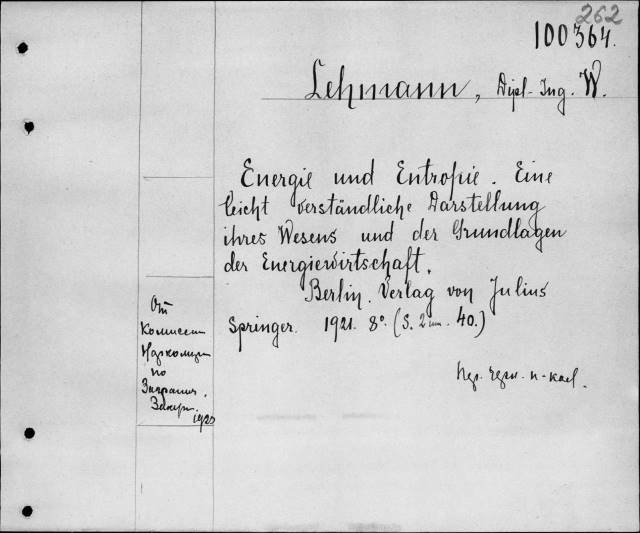 262
100364.
Lehmann, Dipl.-Ing. W.
Energie und Entropie. Eine
leicht verständliche Darstellung
ihres Wesens und der Grundlagen
der Energiewirtschaft.
Berlin. Verlag von Julius
Springer. 1921. 8°. (S. 2 . 40.)
От
Комиссии
по
Загранич.
Закуп.
1923